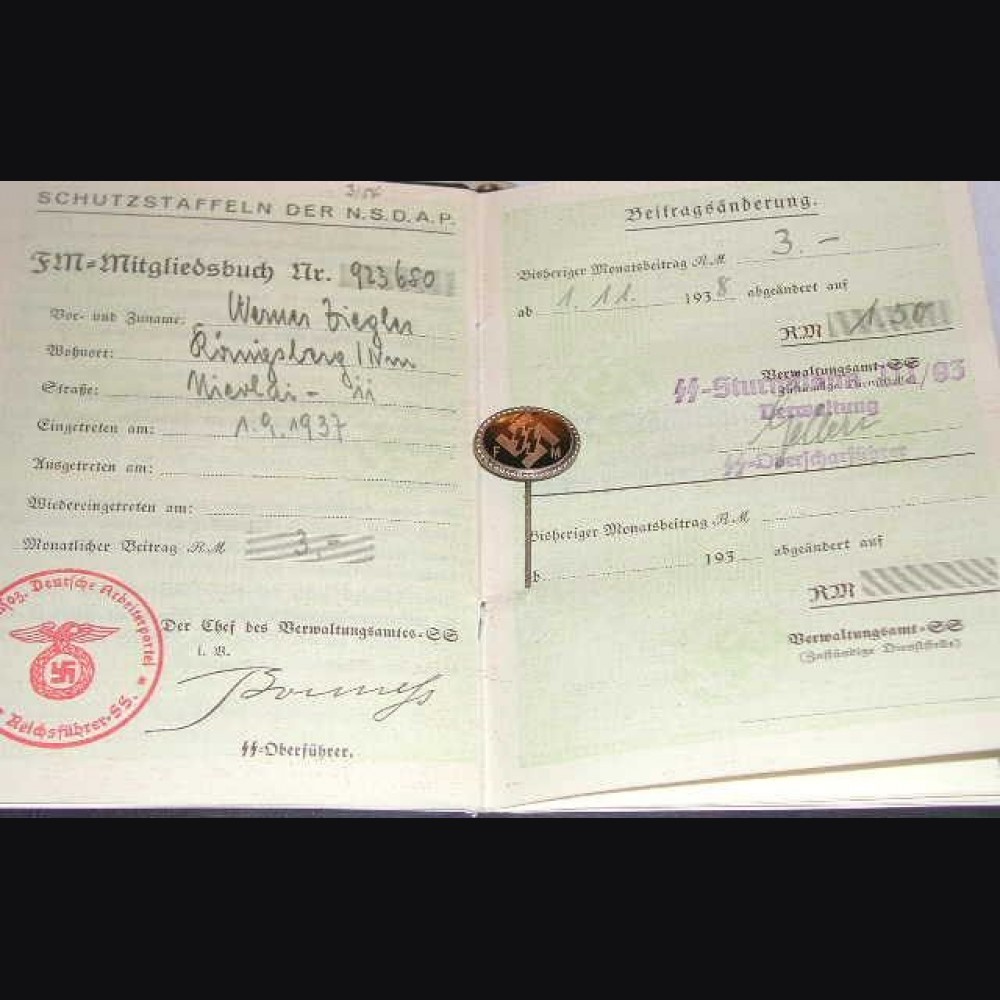 3/56
SCHUTZSTAFFELN DER N.S.D.A.P.
FM-Mitgliedsbuch Nr. 923680
Vor- und Zuname: Werner Ziegler
Wohnort: Königsberg/Nm
Straße: Nicolai-
Eingetreten am: 1.9.1937
Ausgetreten am:
Wiedereingetreten am:
Monatlicher Beitrag R.M 3,-
soz. Deutsche Arbeiterpartei
Reichsführer-SS.
Der Chef des Verwaltungsamtes-SS
i. V.
SS-Oberführer.
Beitragsänderung.
Bisheriger Monatsbeitrag R.M 3.-
ab 1. 11. 1938 abgeändert auf
RM 1,50
Verwaltungsamt-SS
SS-Sturmbann /93
Verwaltung
SS-Oberscharführer
F M
Bisheriger Monatsbeitrag R.M
b 193 abgeändert auf
RM
Verwaltungsamt-SS
(Zuständige Dienststelle)